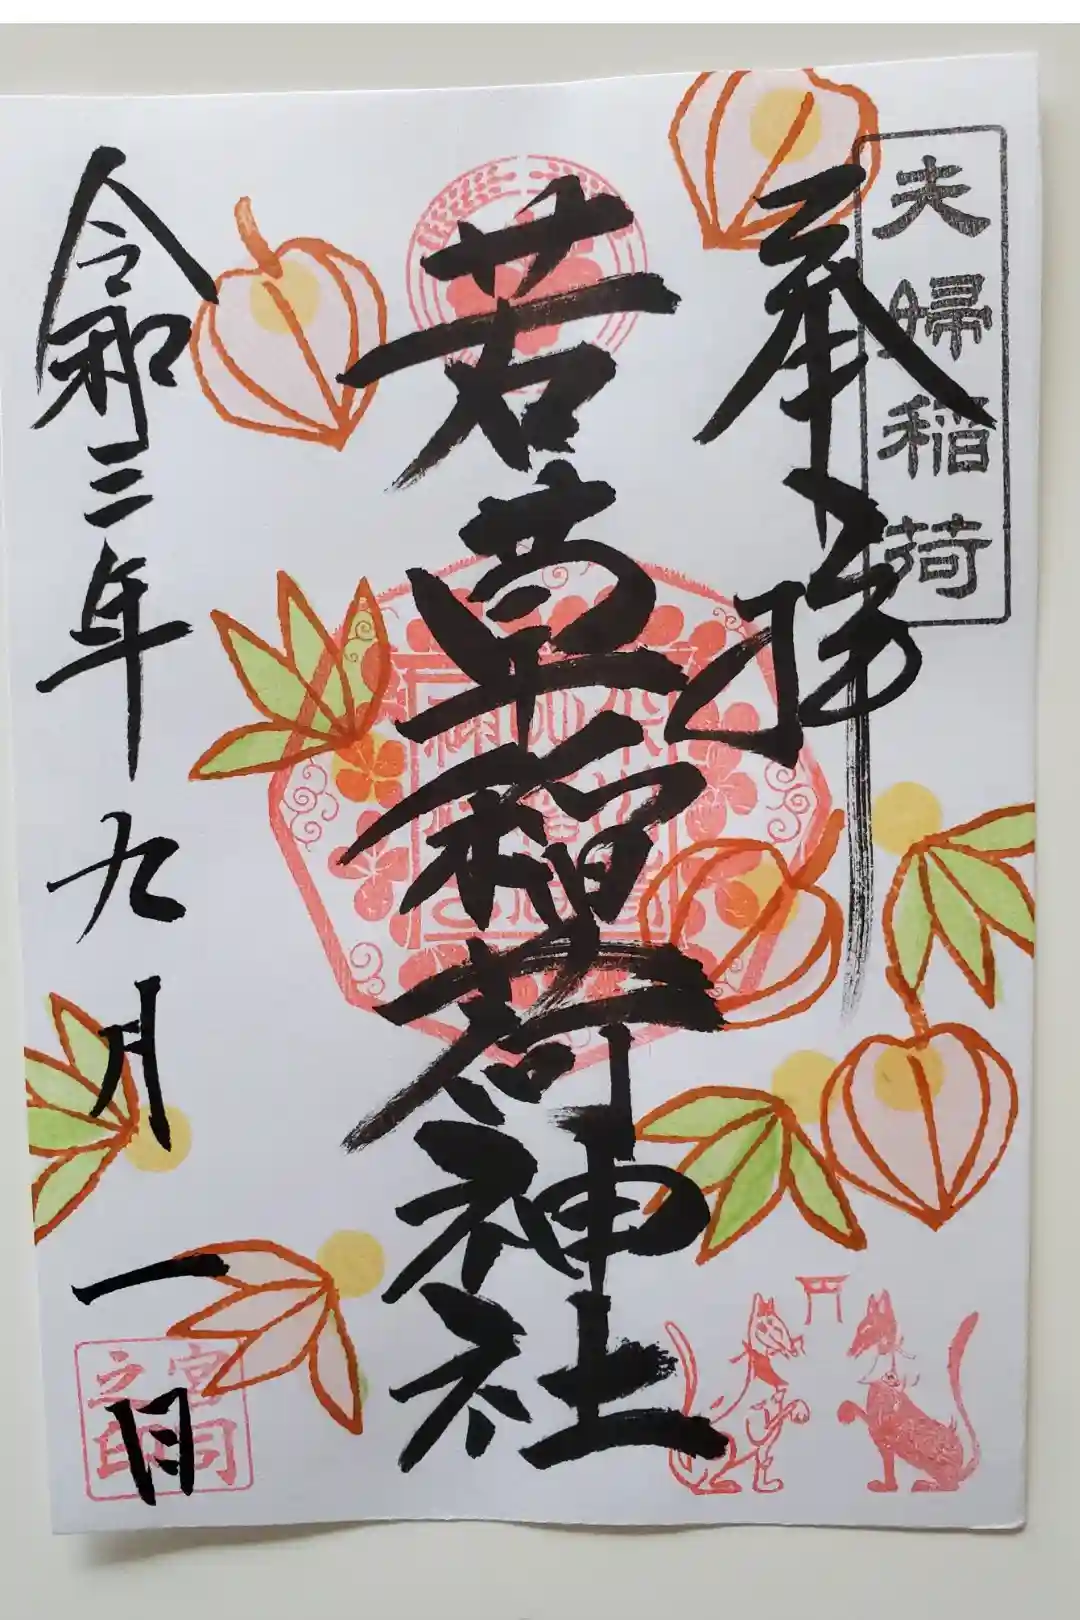 夫婦稲荷
奉拝
若草稲荷神社
令和三年九月一日
宮司之印